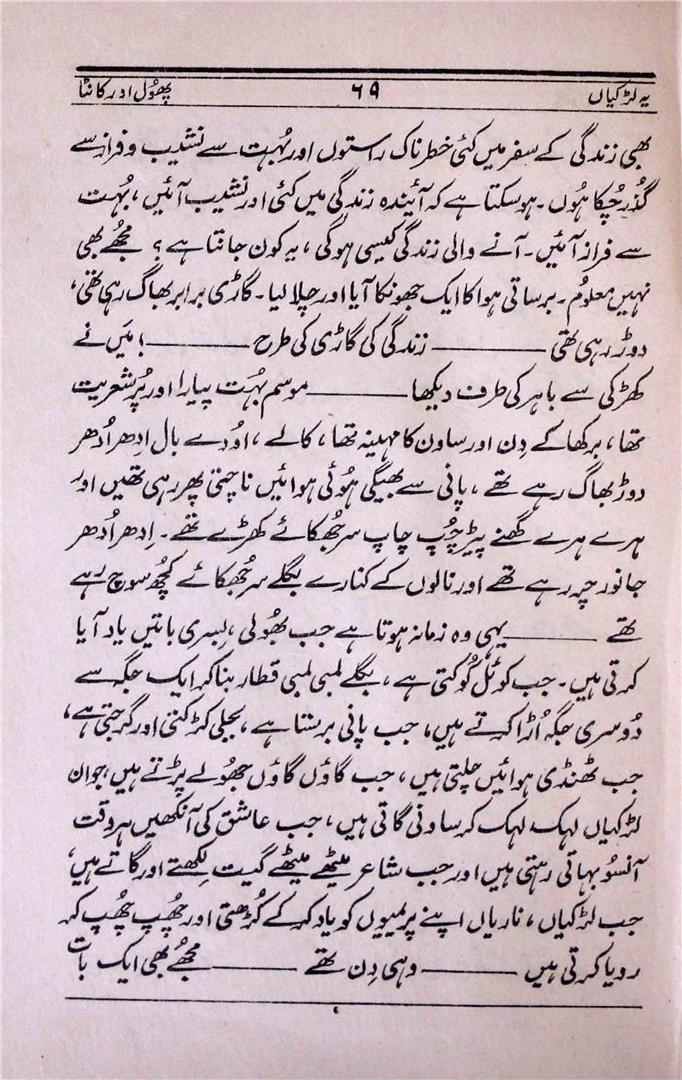 یہ لڑکیاں ۶۹ پھوُل اور کانٹا
بھی زندگی کے سفر میں کئی خطرناک راستوں اور بُہت سے نشیب و فراز سے
گذر چُکا ہُوں۔ ہو سکتا ہے کہ آئیندہ زندگی میں کئی اور نشیب آئیں، بُہت
سے فراز آئیں۔ آنے والی زندگی کیسی ہوگی، یہ کون جانتا ہے؟ مجُھے بھی
نہیں معلوُم۔ برساتی ہوا کا ایک جھونکا آیا اور چلا لیا۔ گاڑی برابر بھاگ رہی تھی،
دوڑ رہی تھی ——— زندگی کی گاڑی کی طرح ———! میَں نے
کھڑکی سے باہر کی طرف دیکھا ——— موسم بہُت پیارا اور پُر شعریت
تھا، برکھا کے دِن اور ساون کا مہینہ تھا، کالے، اوُدے بال اِدھر اُدھر
دوڑ بھاگ رہے تھے، پانی سے بھیگی ہُوئی ہوائیں ناچتی پھر رہی تھیں اور
ہرے ہرے گھنے پیڑ چُپ چاپ سر جُھکائے کھڑے تھے۔ اِدھر اُدھر
جانور چر رہے تھے اور نالوں کے کنارے بگلے سر جُھکائے کُچھ سوچ رہے
تھے ——— یہی وہ زمانہ ہوتا ہے جب بھُولی، بِسری باتیں یاد آیا
کرتی ہیں۔ جب کوئل کُوکتی ہے، بگلے لمبی لمبی قطار بنا کر ایک جگہ سے
دُوسری جگہ اُڑا کتے ہیں، جب پانی برستا ہے، بجلی کڑکتی اور گرجتی ہے،
جب ٹھنڈی ہوائیں چلتی ہیں، جب گاؤں گاؤں جھولے پڑتے ہیں، جوان
لڑکیاں لہک لہک کر ساونی گاتی ہیں، جب عاشق کی آنکھیں ہر وقت
آنسُو بہاتی رہتی ہیں اور جب شاعر میٹھے میٹھے گیت لِکھتے اور گاتے ہیں،
جب لڑکیاں، ناریاں اپنے پرلمیوں کو یاد کر کے کُڑھتی اور چُھپ چُھپ کر
رویا کرتی ہیں ——— وہی دِن تھے ——— مجُھے بھی ایک بات